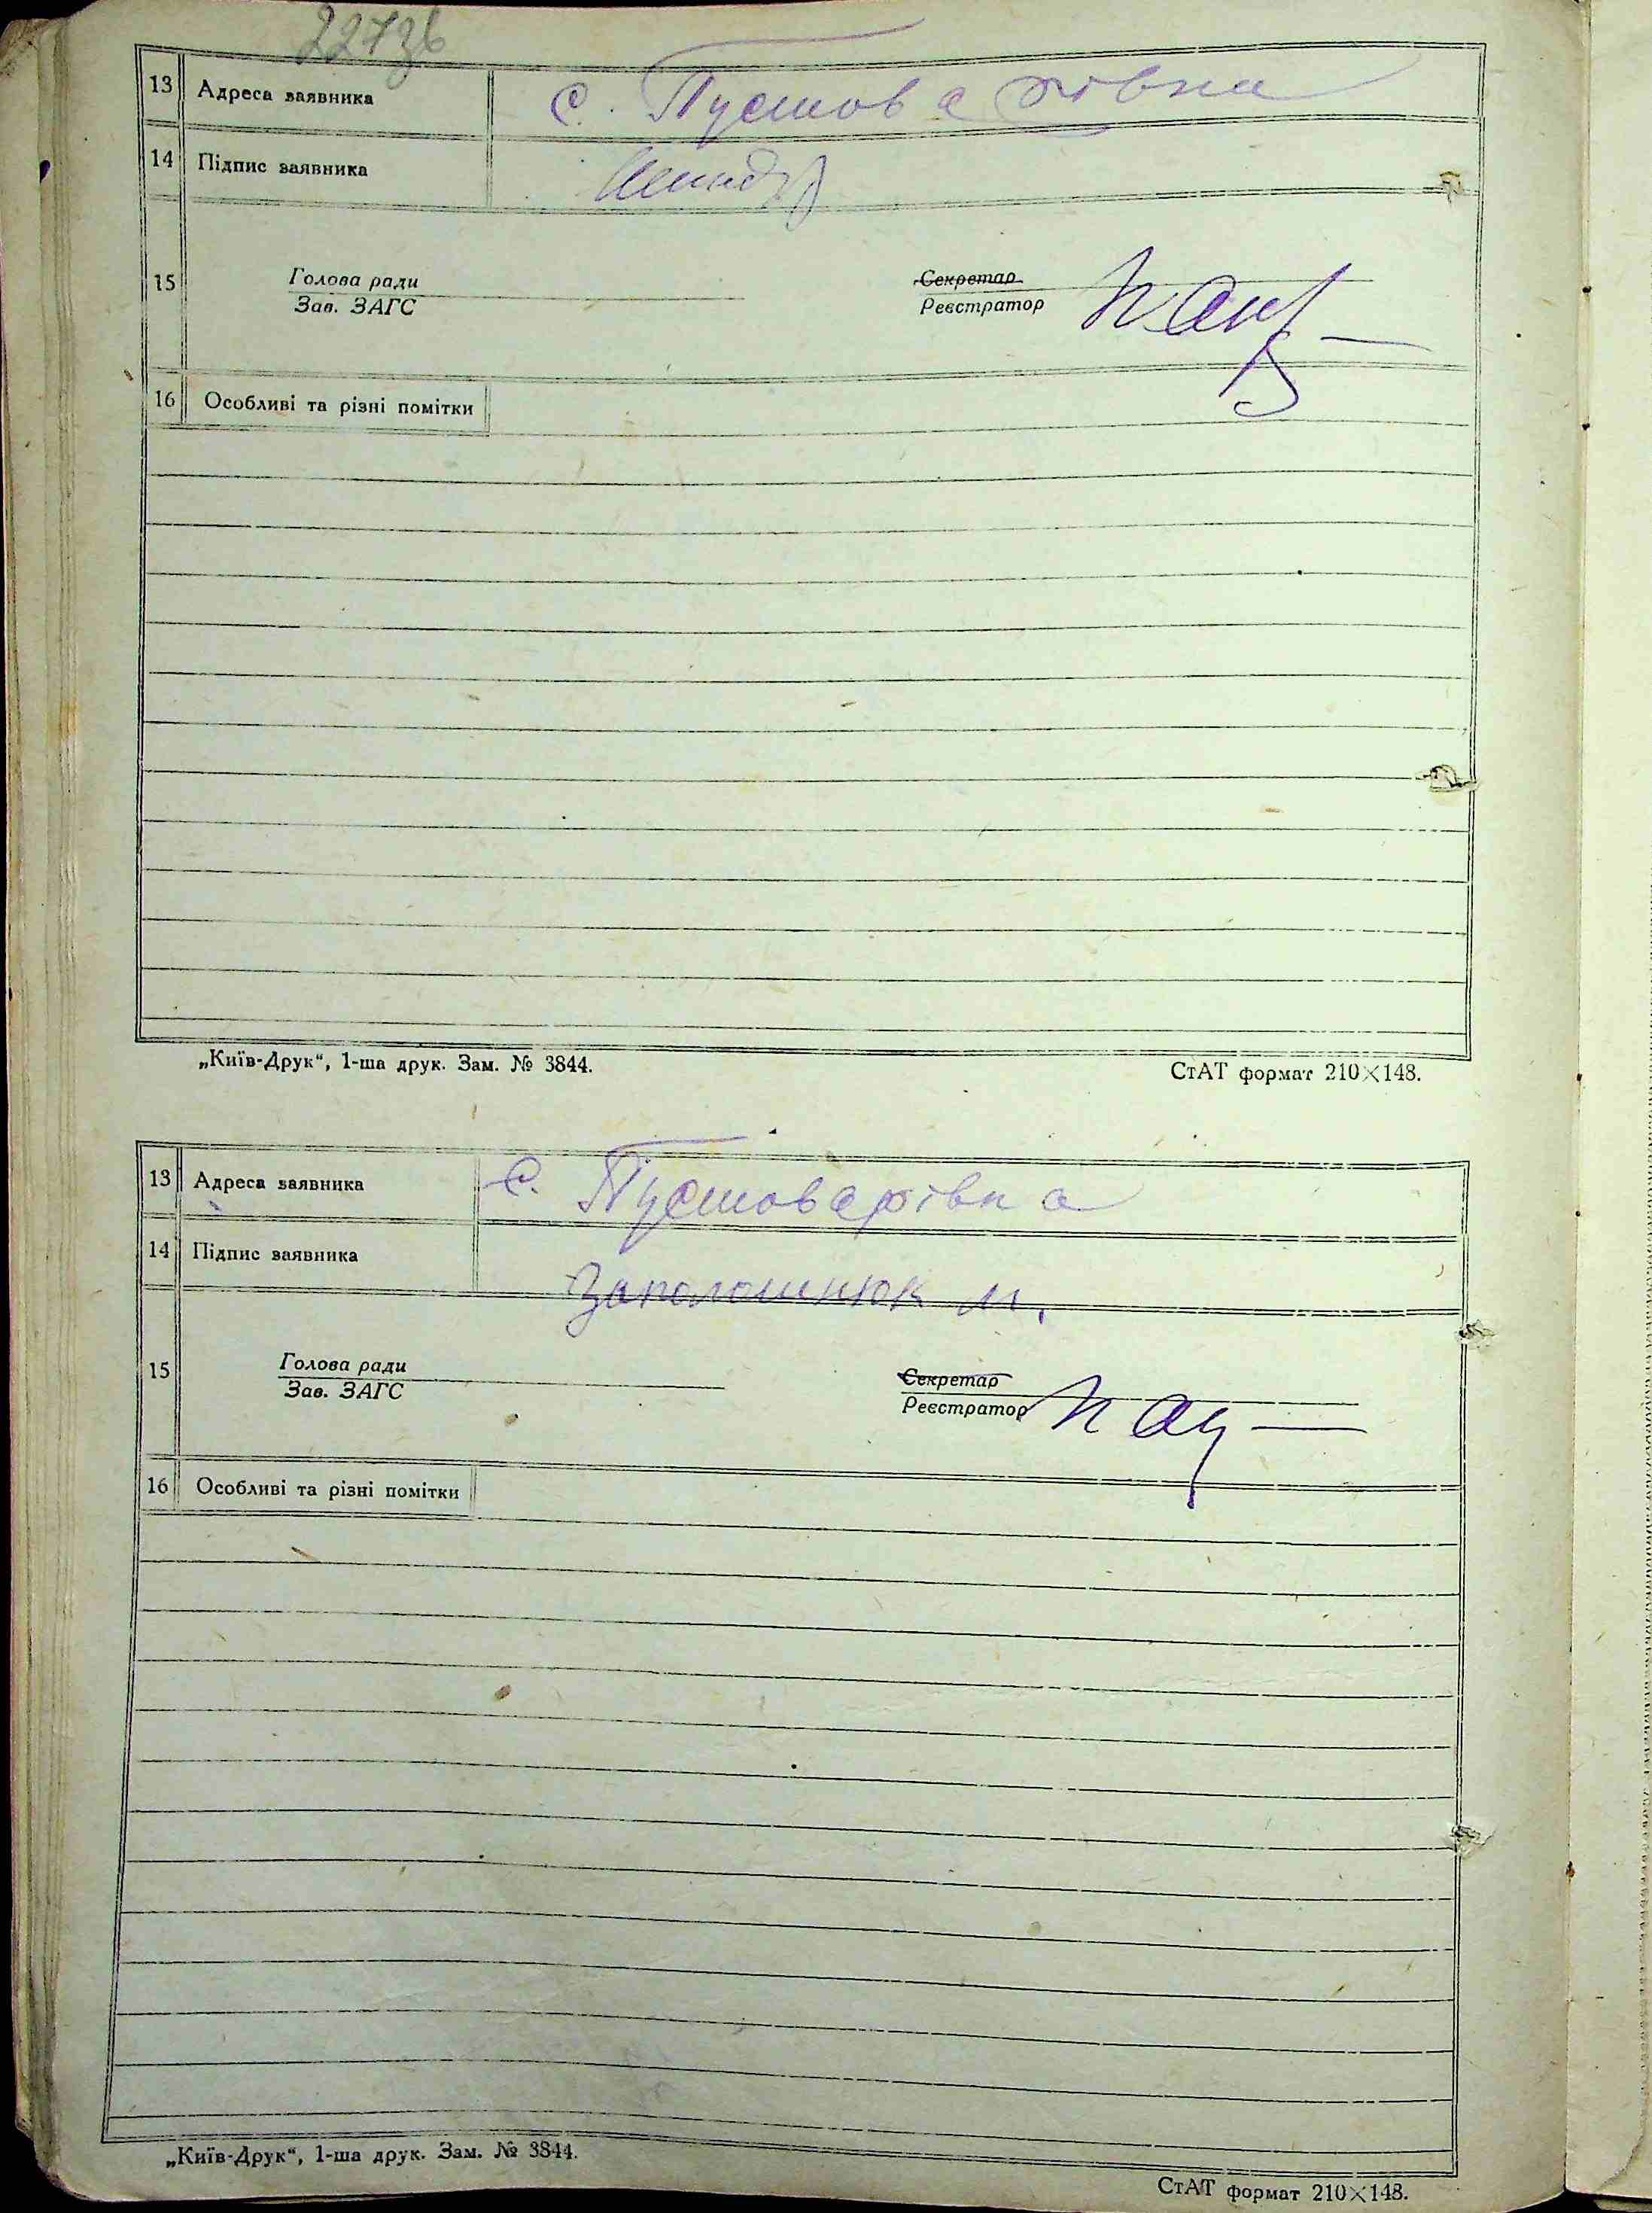 227зв
13 Адреса заявника с. Пустоварівка
14 Підпис заявника
15 Голова ради Секретар
Зав. ЗАГС Реєстратор
16 Особливі та різні помітки
„Київ-Друк“, 1-ша друк. Зам. № 3844. СтАТ формат 210×148.
13 Адреса заявника с. Пустоварівка
14 Підпис заявника Заполошнюк М.
15 Голова ради Секретар
Зав. ЗАГС Реєстратор
16 Особливі та різні помітки
„Київ-Друк“, 1-ша друк. Зам. № 3844. СтАТ формат 210×148.